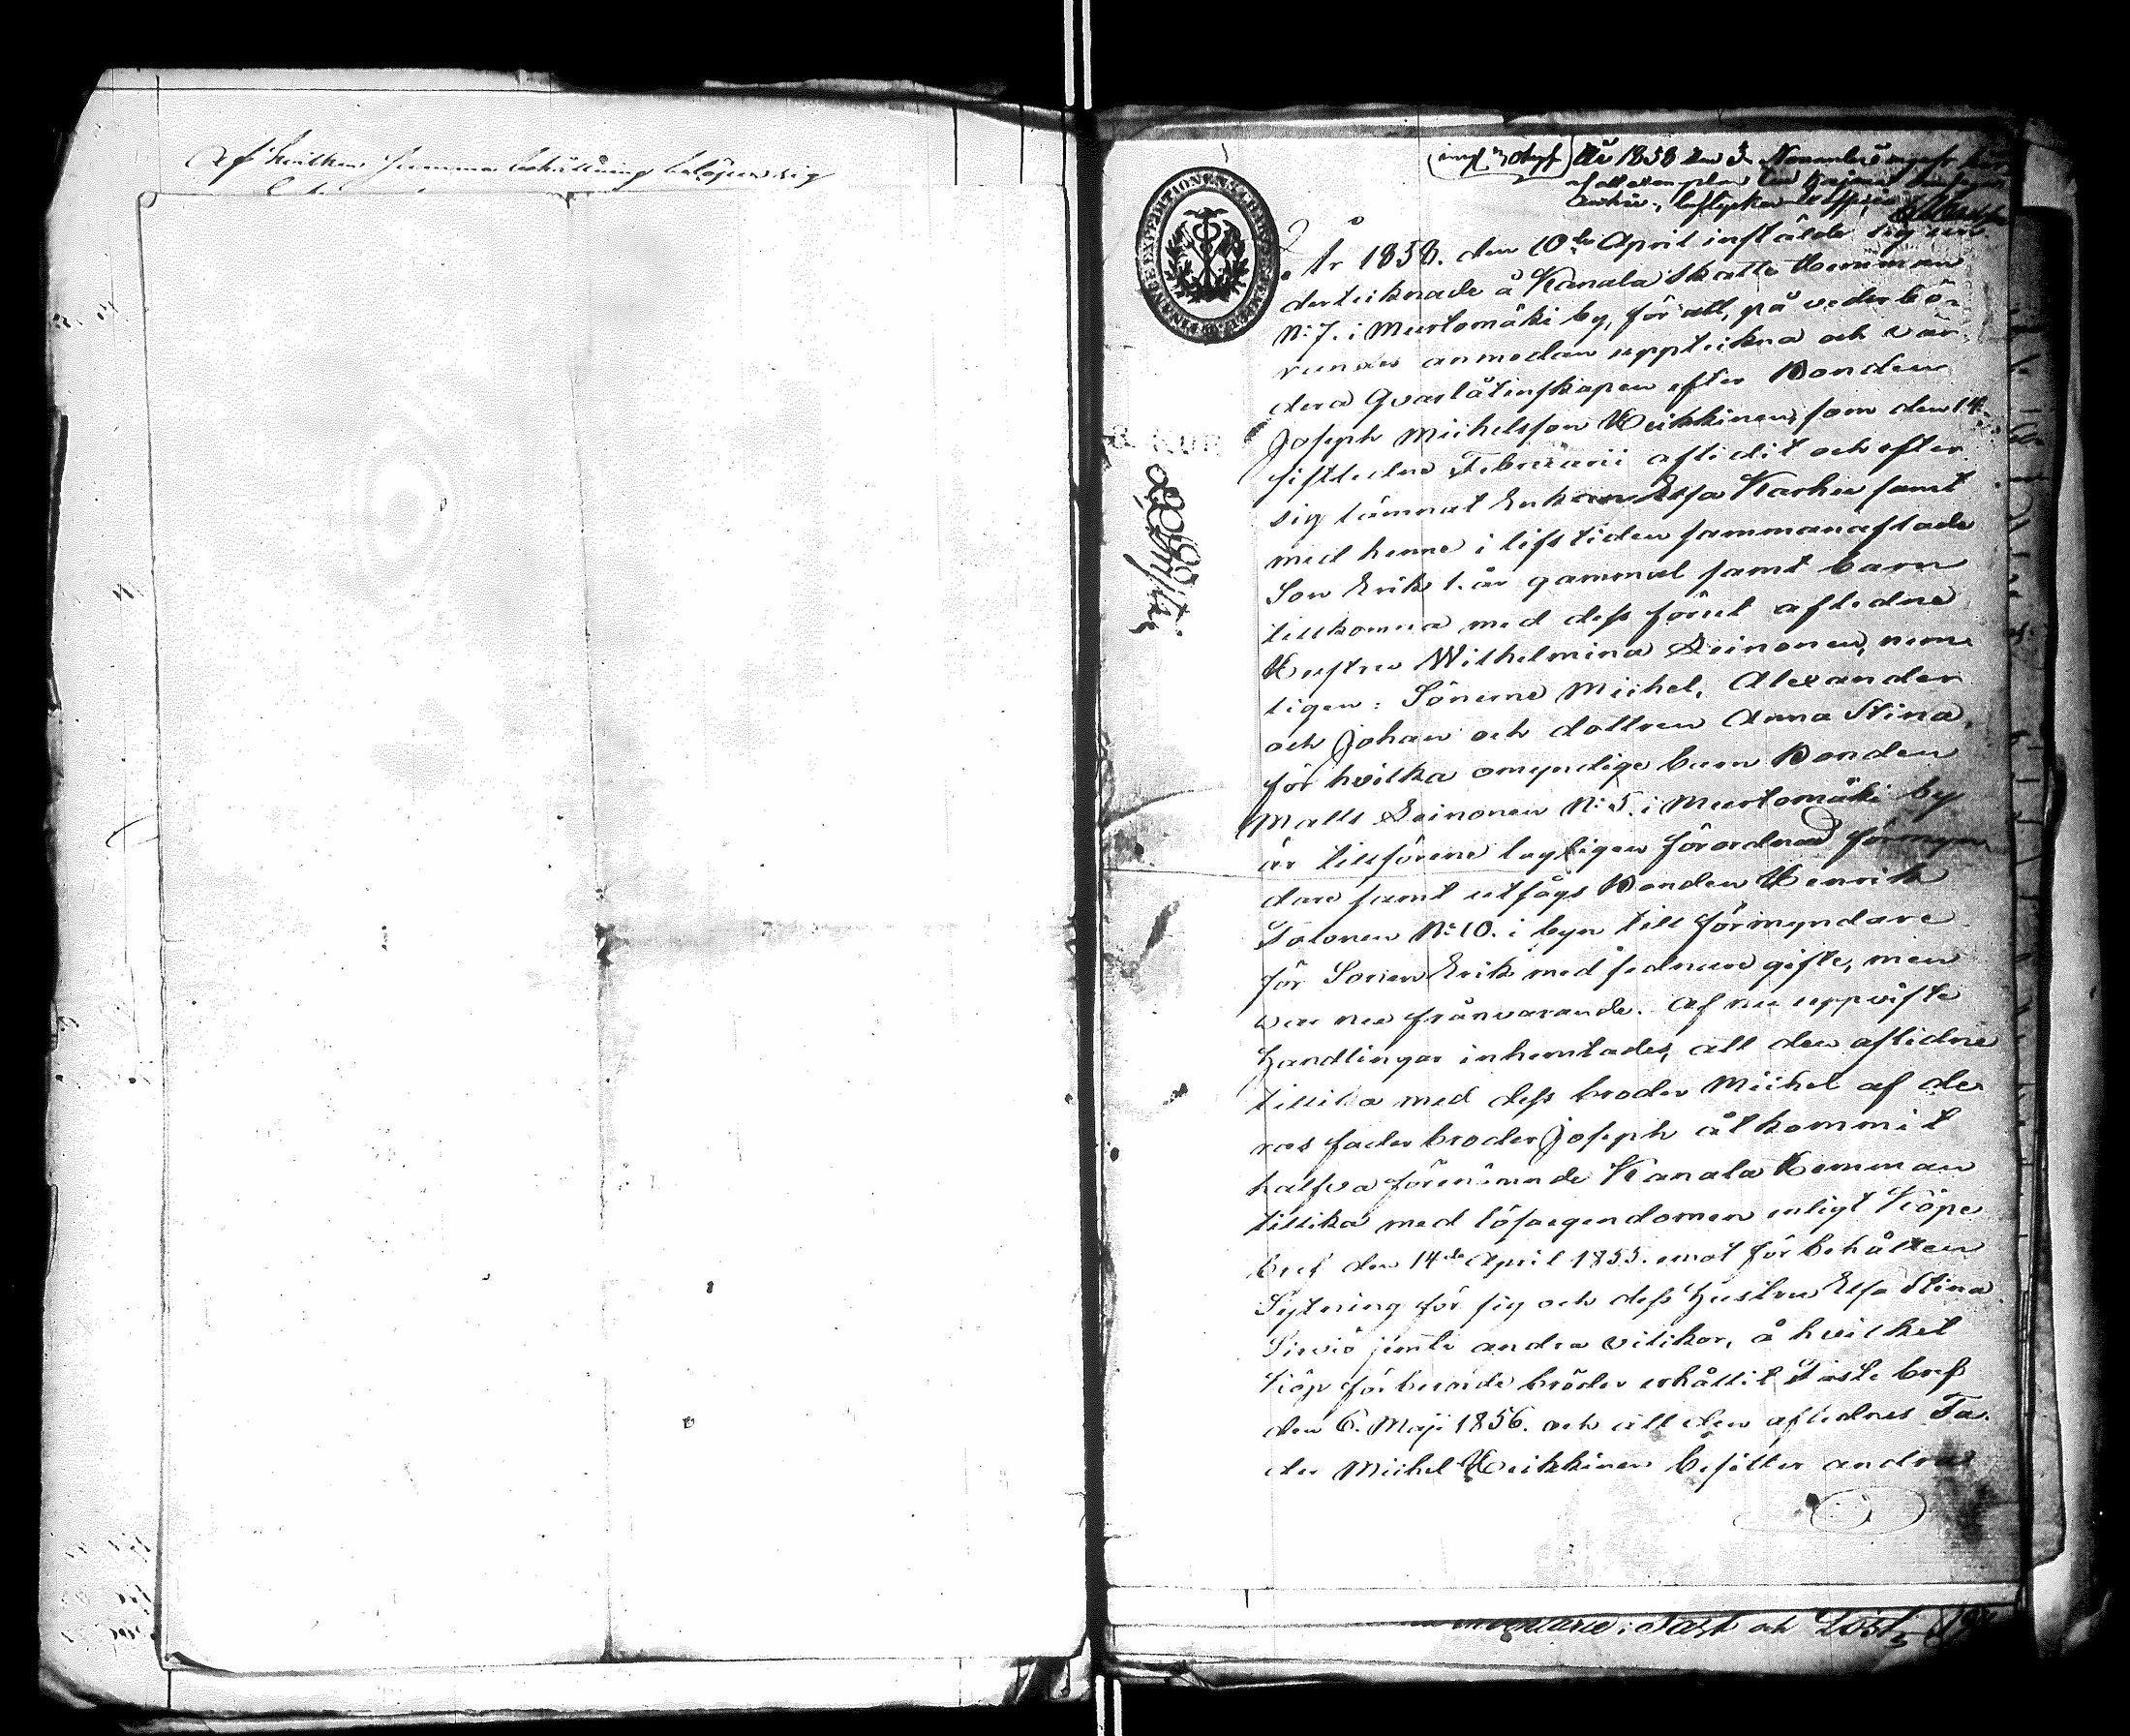 Af hvilken Summa behållning belöper sig
År 1858 den 3 November ingafs
År 1858. den 10de April instälde sig un-
dertecknade å Kanala Skatte Hemman
N:7. i Murtomäki by, för att, på vederbö-
randes anmodan uppteckna och vär-
dera Qvarlåtenskapen efter Bonden
Joseph Michelsson Heikkinen, som den 14.
sistledne Februarii aflidit och efter
sig lämnat Enkan Elsa Karhu samt
med henne i lifstiden sammanaflade
Son Erik 1. år gammal samt barn
tillkomna med dess förut aflidne
Hustru Wilhelmina Leinonen, nem-
ligen: Sönerne Michel, Alexander
och Johan och dottren Anna Stina,
för hvilka omyndige barn Bonden
Matts Leinonen N:5. i Murtomäki by
är tillförene lagligen förordnad förmyn-
dare samt utsågs Bonden Henrik
N:10. i byn till förmyndare
för Sonen Erik med sednare gifte, men
var nu frånvarande. Af nu uppviste
Handlingar inhemtades, att den aflidne
tillika med dess broder Michel af de-
ras faderbroder Joseph åtkommit
halfva förenämnde Kanala Hemman
tillika med lösaegendomen enligt Köpe
bref den 14de April 1855. emot förbehållen
Sytning för sig och dess Hustru Elsa Stina
Sirviö jemte andra vilkor, å hvilket
Köp förberörde bröder erhållit Faste bref
den 6. Maji 1856. och att den aflidnes Fa-
der Michel Heikkinen besitter andra
i Fast och Löst